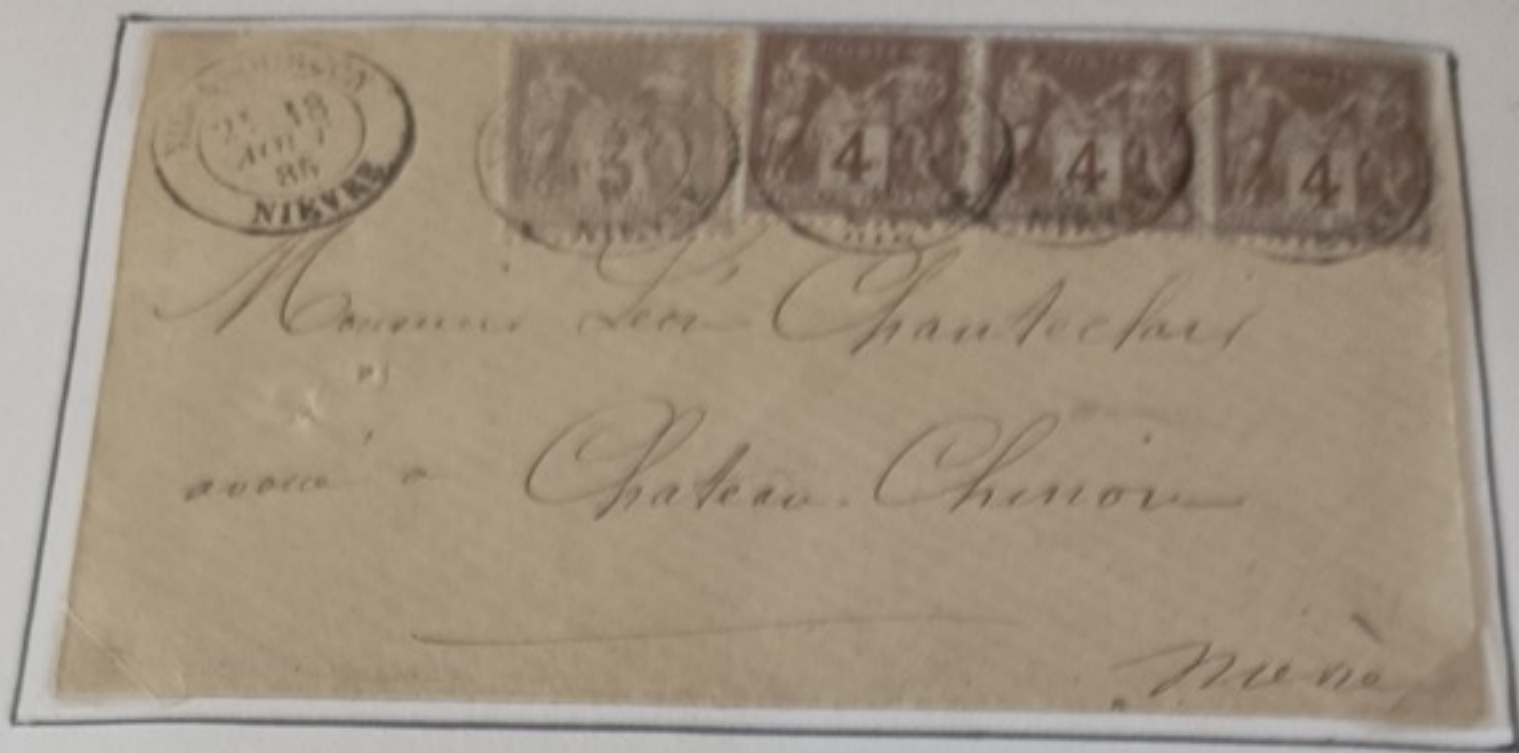 2E 18
AOUT
86
NIEVRE
3
NIEVRE
4
4
NIEVRE
4
Monsieur Léon Chanteclair
avoué à Château-Chinon
Nièvre